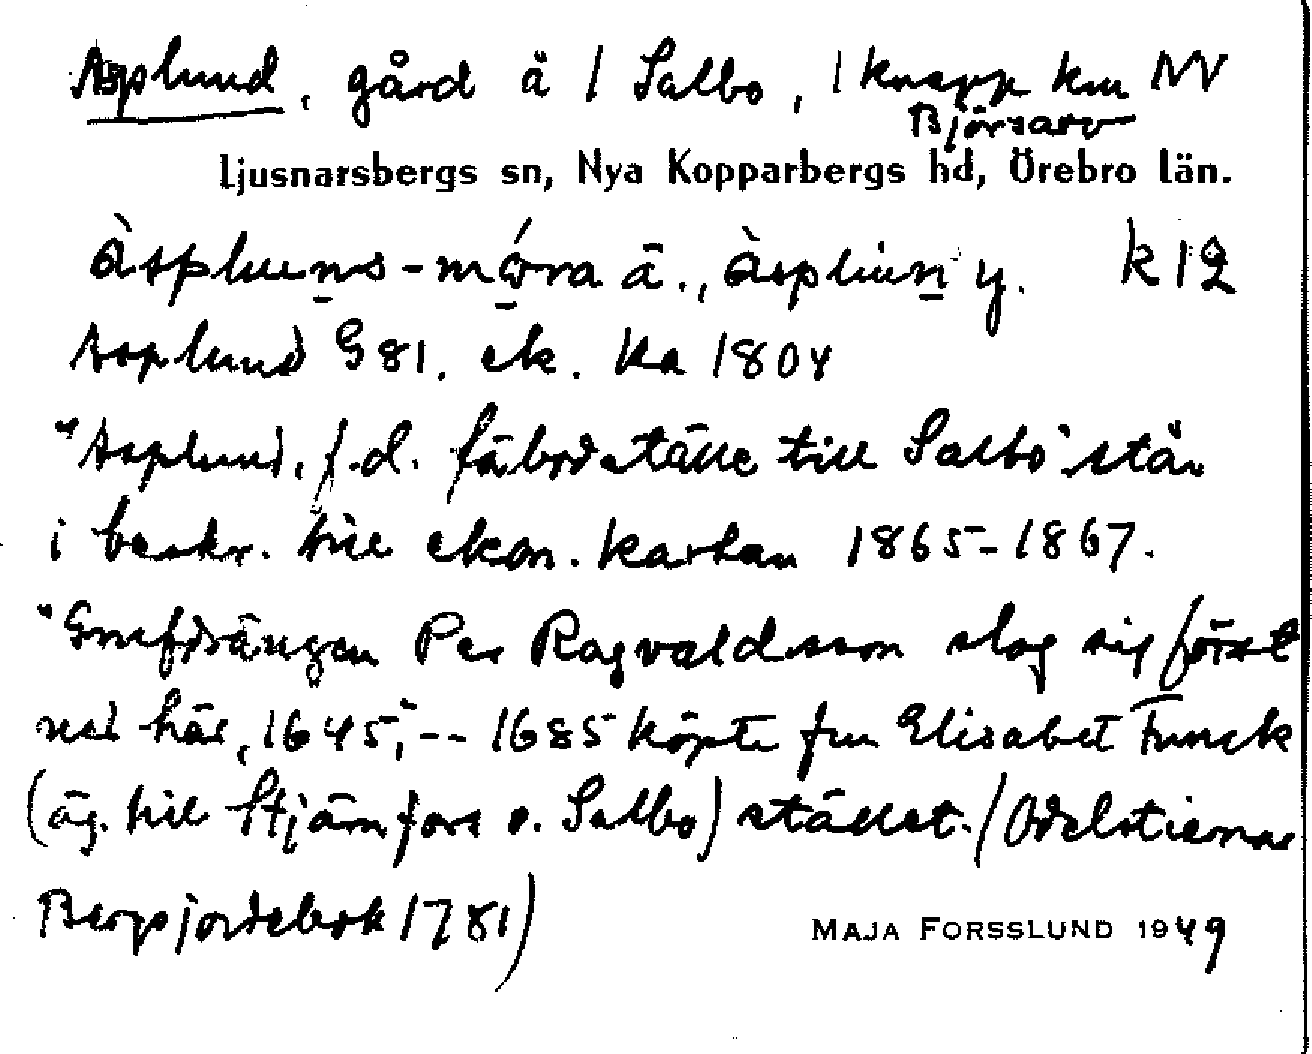 Asplund, gård å / Salbo, 1 knapp km NV
Björsarv
Ljusnarsbergs sn, Nya Kopparbergs hd, Örebro län.
àspluns-móra ä., àsplun y. k12
Asplund G81. ek. ka 1804
"Asplund, f.d. fäbodställe till Salbo" står
i beskr. till ekon. kartan 1865-1867.
"Grufdrängen Per Ragvaldsson slog sig först
ned här, 1645,"-- 1685 köpte fru Elisabet Funck
(äg. till Stjärnfors o. Salbo) stället. (Odelstierna
Bergsjordebok 1781)
MAJA FORSSLUND 1949